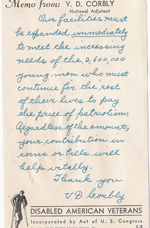 Memo from: V. D. CORBLY
National Adjutant
Our facilities must
be expanded immediately
to meet the increasing
needs of the 2,600,000
young men who must
continue for the rest
of their lives to pay
the price of patriotism.
Regardless of the amount,
your contribution in
coins or bills will
help vitally.
Thank you
V D Corbly
DISABLED AMERICAN VETERANS
Incorporated by Act of U. S. Congress